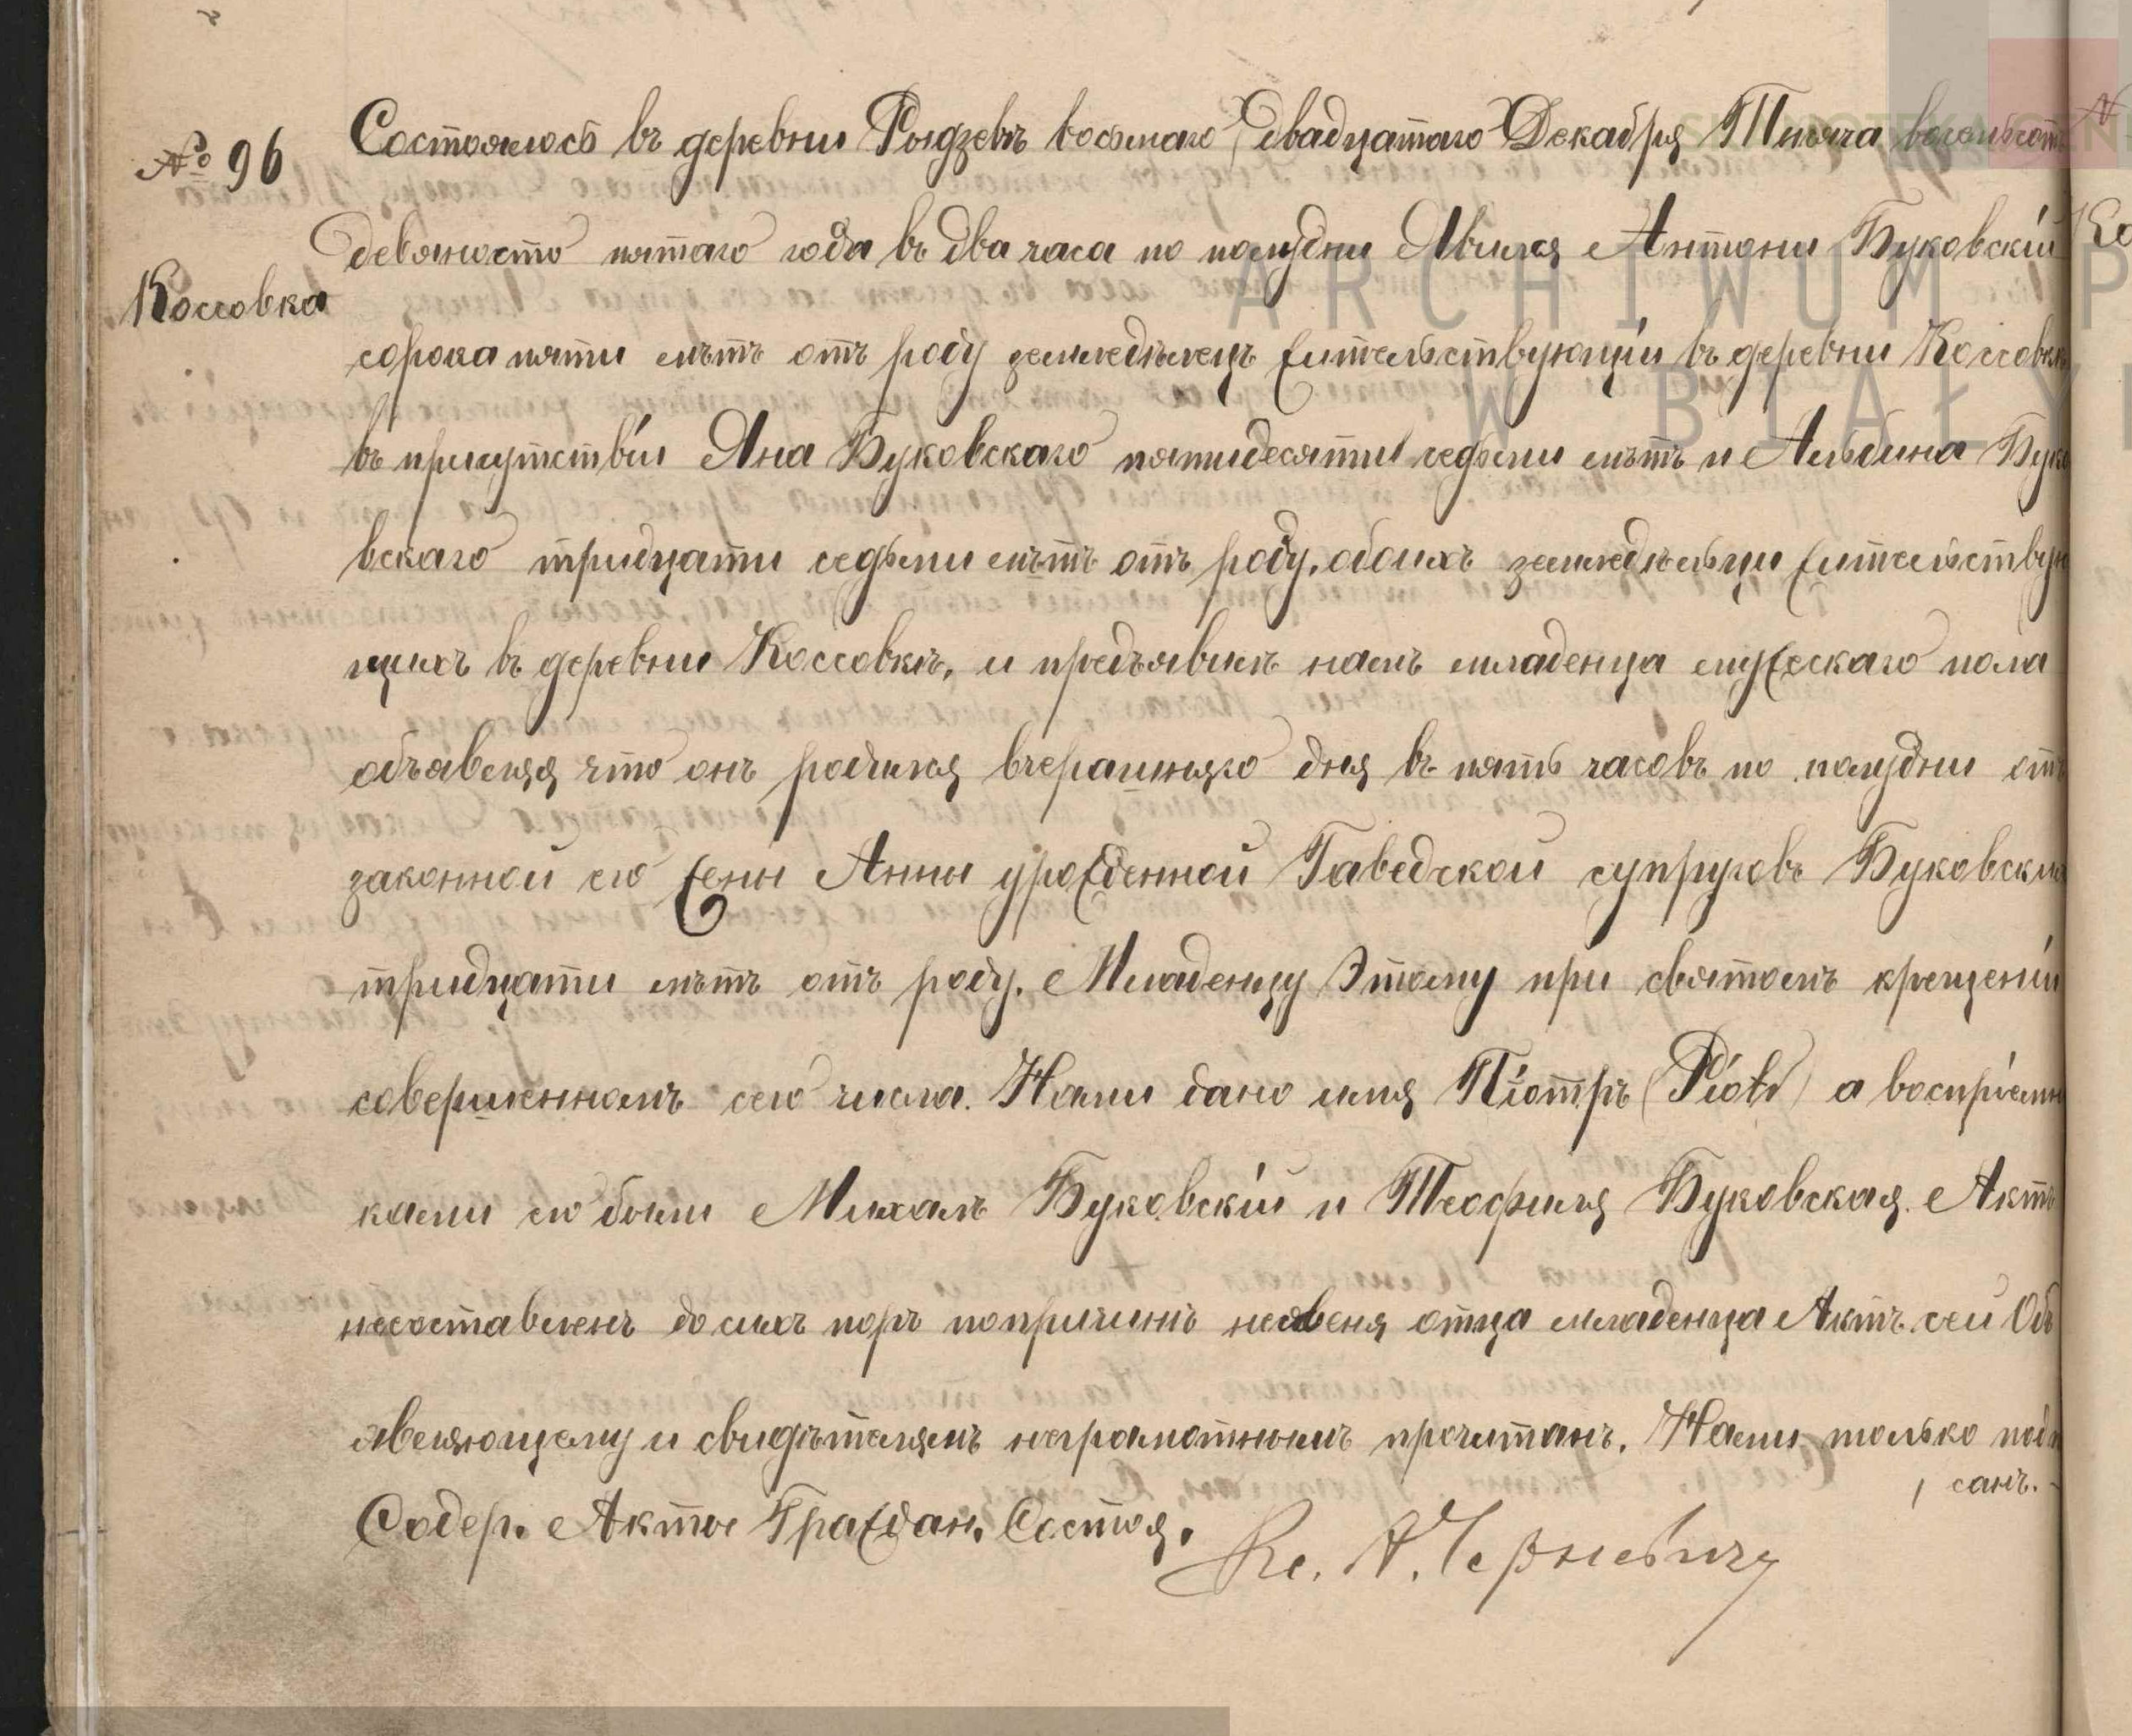 № 96
Состоялось въ деревни Рыдзевѣ восьмаго / двадцатаго Декабря Тысяча восемьсотъ
девяносто пятаго года въ два часа по полудни Явился Антони Буковскій
Коссовка
сорока пяти лѣтъ отъ роду земледѣлецъ жительствующій въ деревни Коссовкѣ
въ присутствіи Яна Буковскаго пятидесяти седьми лѣтъ и Альбина Буко
вскаго тридцати седьми лѣтъ отъ роду, обоихъ земледѣльцы жительствую
щихъ въ деревни Коссовкѣ, и предъявилъ намъ младенца мужескаго пола
объявляя что онъ родился вчерашняго дня въ пять часовъ по полудни отъ
законной его жены Анны урожденной супруговъ Буковскихъ
тридцати лѣтъ отъ роду. Младенцу Этому при святомъ крещеніи
совершенномъ сего числа. Нами дано имя Піотръ (Piotr) а воспріемни
ками его были Михалъ Буковскій и Теофиля Буковская. Актъ
несоставленъ до сихъ поръ попричинѣ отца младенца Актъ сей Объ
являющему и свидѣтелямъ неграмотнымъ прочитанъ. Нами только подпи
санъ. -
Содер. Акты Граждан. Состоя.
Кс. А. Черневичъ
ARCHIWUM P
W BIAŁY